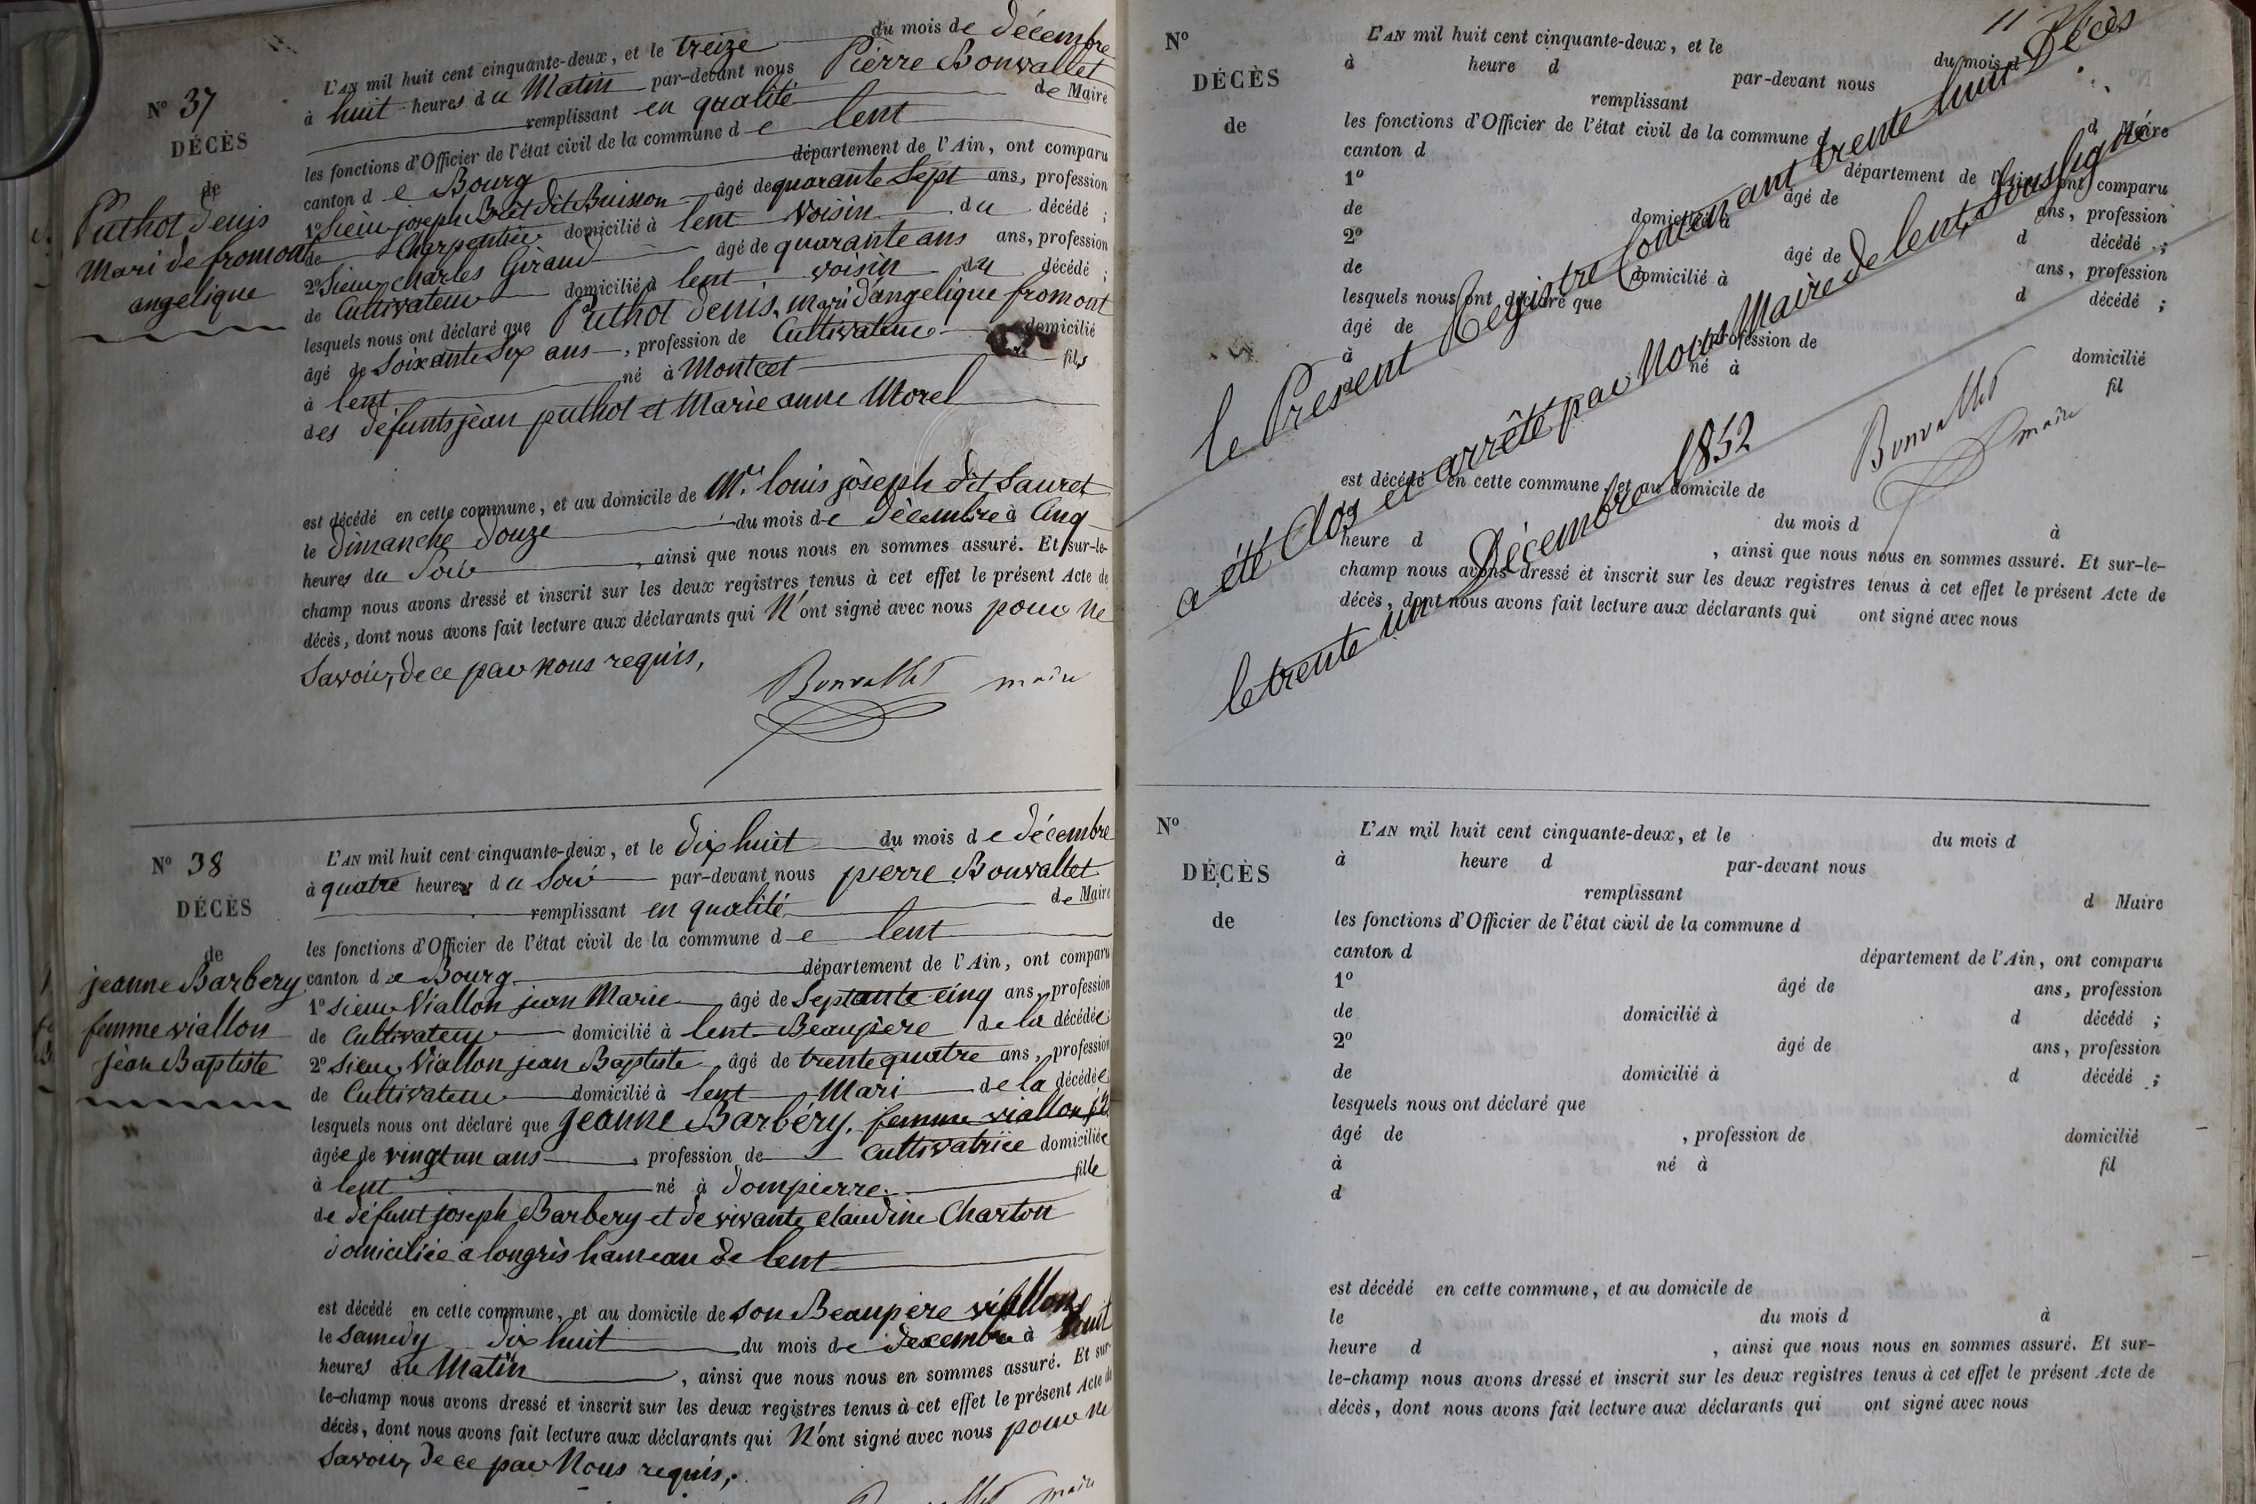 N° 37
DÉCÈS
de
Puthod Denis
Mari de fromont
angelique
L'AN mil huit cent cinquante-deux, et le treize du mois de décembre
à huit heures du Matin par-devant nous Pierre Bonvallet
remplissant en qualité de Maire
les fonctions d'Officier de l'état civil de la commune de lent
canton de Bourg département de l'Ain, ont comparu
1° Sieur joseph Bret dit Buisson âgé de quarante Sept ans, profession
de Charpentier domicilié à lent voisin du décédé ;
2° Sieur Charles Giraud âgé de quarante ans ans, profession
de Cultivateur domicilié à lent voisin du décédé ;
lesquels nous ont déclaré que Puthod denis, mari d'angelique fromont
âgé de Soixante Six ans, profession de Cultivateur domicilié
à lent né à Montcet fils
des défunts jean puthod et Marie anne Morel
est décédé en cette commune, et au domicile de Mr. louis joseph dit Sauret
le dimanche douze du mois de décembre à Cinq
heures du Soir, ainsi que nous nous en sommes assuré. Et sur-le-
champ nous avons dressé et inscrit sur les deux registres tenus à cet effet le présent Acte de
décès, dont nous avons fait lecture aux déclarants qui N'ont signé avec nous pour ne
Savoir, de ce par nous requis,
Bonvallet maire
N° 38
DÉCÈS
de
jeanne Barbery
femme viallon
jean Baptiste
L'AN mil huit cent cinquante-deux, et le dix huit du mois de décembre
à quatre heures du Soir par-devant nous pierre Bonvallet
remplissant en qualité de Maire
les fonctions d'Officier de l'état civil de la commune de lent
canton de Bourg département de l'Ain, ont comparu
1° Sieur Viallon jean Marie âgé de Septante cinq ans, profession
de Cultivateur domicilié à lent Beaupère de la décédée
2° Sieur Viallon jean Baptiste âgé de trente quatre ans, profession
de Cultivateur domicilié à lent Mari de la décédée
lesquels nous ont déclaré que jeanne Barbéry, femme viallon
âgée de vingt un ans, profession de Cultivatrice domiciliée
à lent né à dompierre fille
de défunt joseph Barbery et de vivante claudine Charton
domiciliée a longris hameau de lent
est décédé en cette commune, et au domicile de son Beaupère viallon
le samedy dix huit du mois de decembre à huit
heures du Matin, ainsi que nous nous en sommes assuré. Et sur-
le-champ nous avons dressé et inscrit sur les deux registres tenus à cet effet le présent Acte de
décès, dont nous avons fait lecture aux déclarants qui N'ont signé avec nous pour ne
Savoir, de ce par Nous requis,
Bonvallet maire
11
N°
DÉCÈS
de
L'AN mil huit cent cinquante-deux, et le du mois d
à heure d par-devant nous
remplissant d Maire
les fonctions d'Officier de l'état civil de la commune d
canton d département de l'Ain, ont comparu
1° âgé de ans, profession
de domicilié à d décédé ;
2° âgé de ans, profession
de domicilié à d décédé ;
lesquels nous ont déclaré que
âgé de , profession de domicilié
à né à fil
est décédé en cette commune, et au domicile de
du mois d à
heure d , ainsi que nous nous en sommes assuré. Et sur-le-
champ nous avons dressé et inscrit sur les deux registres tenus à cet effet le présent Acte de
décès, dont nous avons fait lecture aux déclarants qui ont signé avec nous
le Present Registre Contenant trente huit Décès
a été Clos et arrêté par Nous Maire de lent, Soussigné
le trente un Décembre 1852
Bonvallet maire
N°
DÉCÈS
de
L'AN mil huit cent cinquante-deux, et le du mois d
à heure d par-devant nous
remplissant d Maire
les fonctions d'Officier de l'état civil de la commune d
canton d département de l'Ain, ont comparu
1° âgé de ans, profession
de domicilié à d décédé ;
2° âgé de ans, profession
de domicilié à d décédé ;
lesquels nous ont déclaré que
âgé de , profession de domicilié
à né à fil
d
est décédé en cette commune, et au domicile de
le du mois d à
heure d , ainsi que nous nous en sommes assuré. Et sur-
le-champ nous avons dressé et inscrit sur les deux registres tenus à cet effet le présent Acte de
décès, dont nous avons fait lecture aux déclarants qui ont signé avec nous